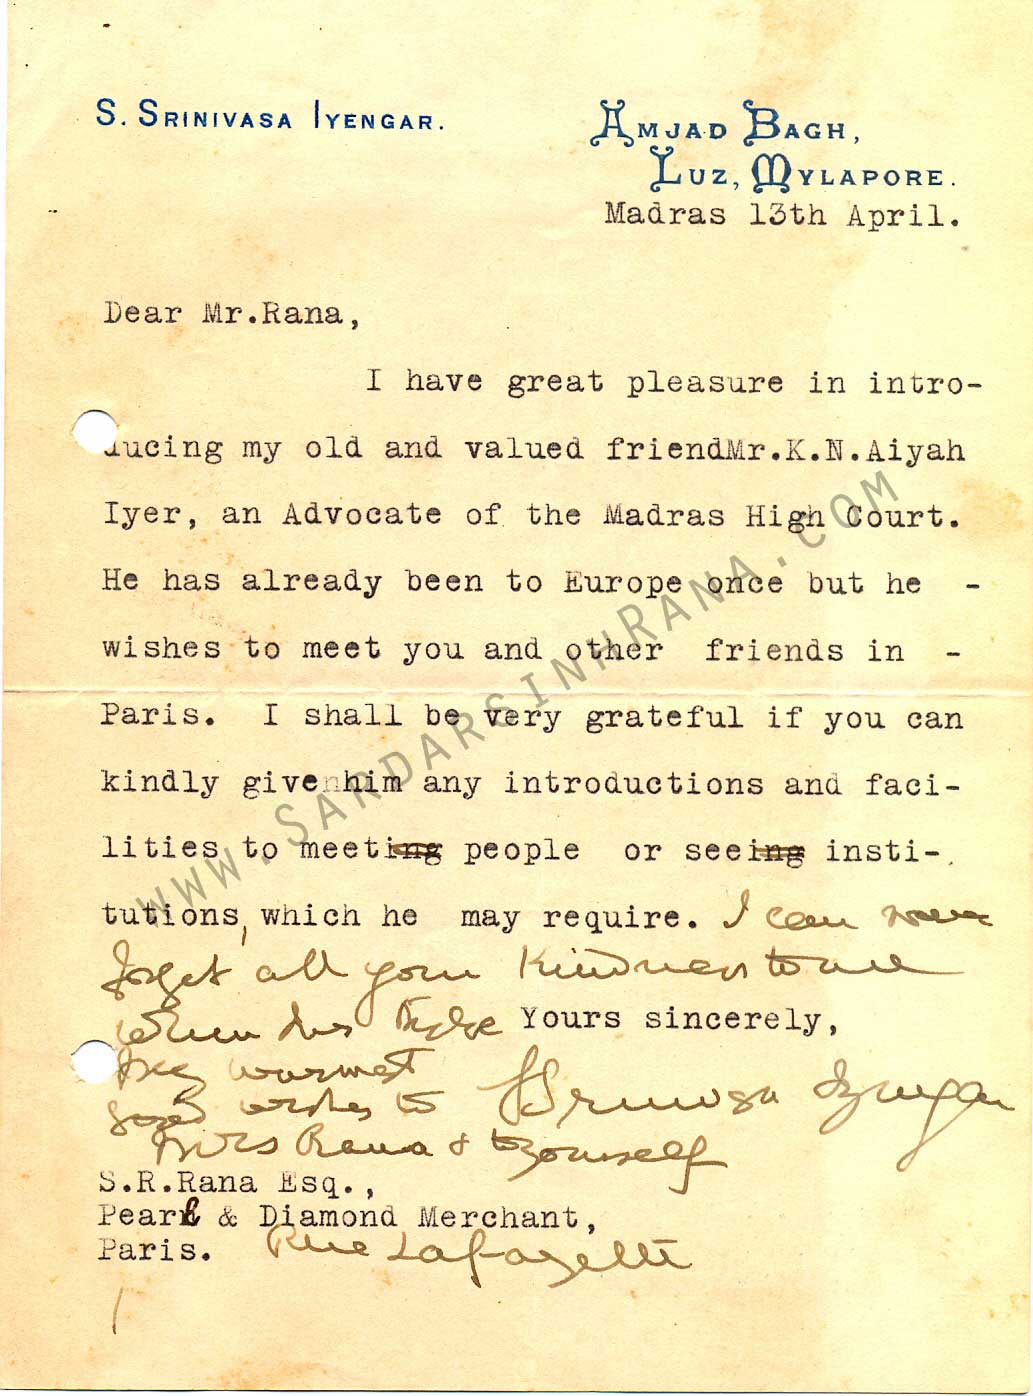 S. SRINIVASA IYENGAR.
AMJAD BAGH,
LUZ, MYLAPORE.
Madras 13th April.
Dear Mr.Rana,
I have great pleasure in intro-
ducing my old and valued friendMr.K.N.Aiyah
Iyer, an Advocate of the Madras High Court.
He has already been to Europe once but he -
wishes to meet you and other friends in -
Paris. I shall be very grateful if you can
kindly give him any introductions and faci-
lities to meeting people or seeing insti-
tutions, which he may require. I can never
forget all your kindness to me
Yours sincerely,
My warmest
good wishes to
Srinivasa Iyengar
Mrs Rana & to yourself
S.R.Rana Esq.,
Pearl & Diamond Merchant,
Paris. Rue Lafayette
WWW.SARDARSINHRANA.COM